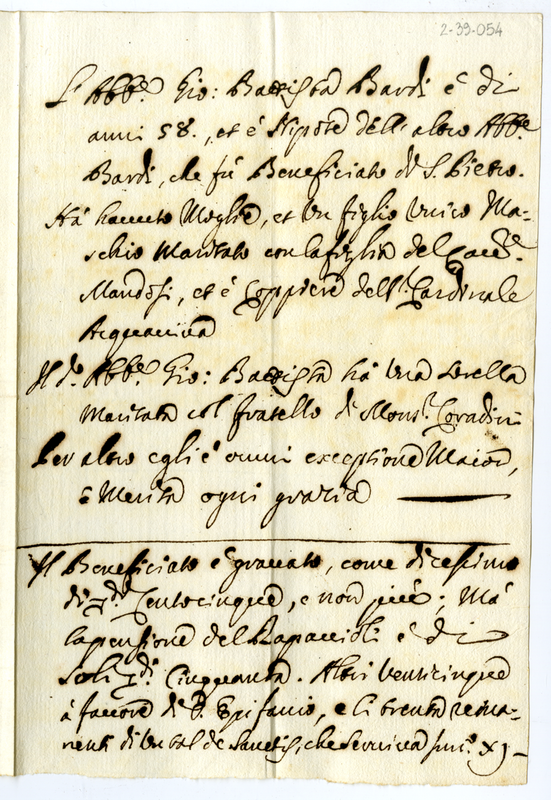 2-39-054
L'Abb.e Gio: Battista Bardi è di
anni 58., et è Nipote dell'altro Abb.e
Bardi, che fù Beneficiato di S. Pietro.
Hà havuto Moglie, et un figlio unico Ma-
schio Maritato con la figlia del Cav.e
Mandosi, et è Coppiere dell'. Cardinale
Acquaviva
Il d.o Abb.e Gio: Battista hà una sorella
Maritata col fratello di Mons.r Coradini
Per altro egli è omni exceptione Maior,
e Merita ogni grazia
Il Beneficiato è gravato, come dicessimo
di Centocinque, e non più; Mà
la pensione del Rapaccioli è di
soli Cinquanta. Altri venticinque
à favore di D. Epifanio, e li trenta rema-
nenti di un tal de Sanctis, che serviva